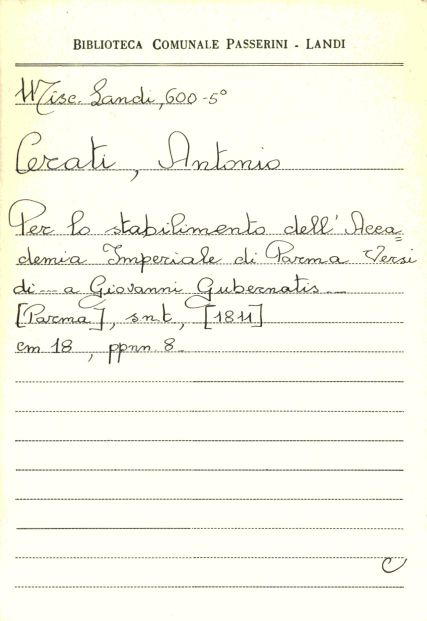 BIBLIOTECA COMUNALE PASSERINI - LANDI
Misc. Landi, 600-5°
Cerati, Antonio
Per lo stabilimento dell'Acca=
demia Imperiale di Parma Versi
di --- a Giovanni Gubernatis ---
[Parma], s.n.t., [1811]
cm 18, ppnn. 8.
C